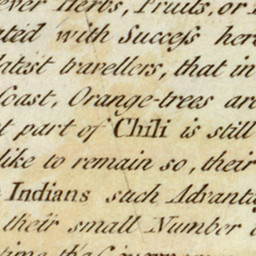 ever Herbs, Fruits, or
ated with Succeſs her
latest travellers, that in
Coast, Orange-trees are
t part of Chili is still
like to remain so, their
Indians such Advanta
their small Number